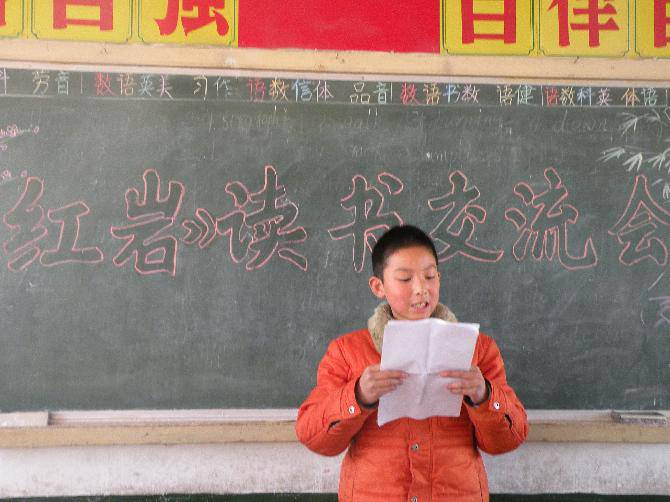 自强 自律 自
科 劳音 数语英美 习作 语数信体 品音数语书数 语健语数科英 体语
红岩》读书交流会